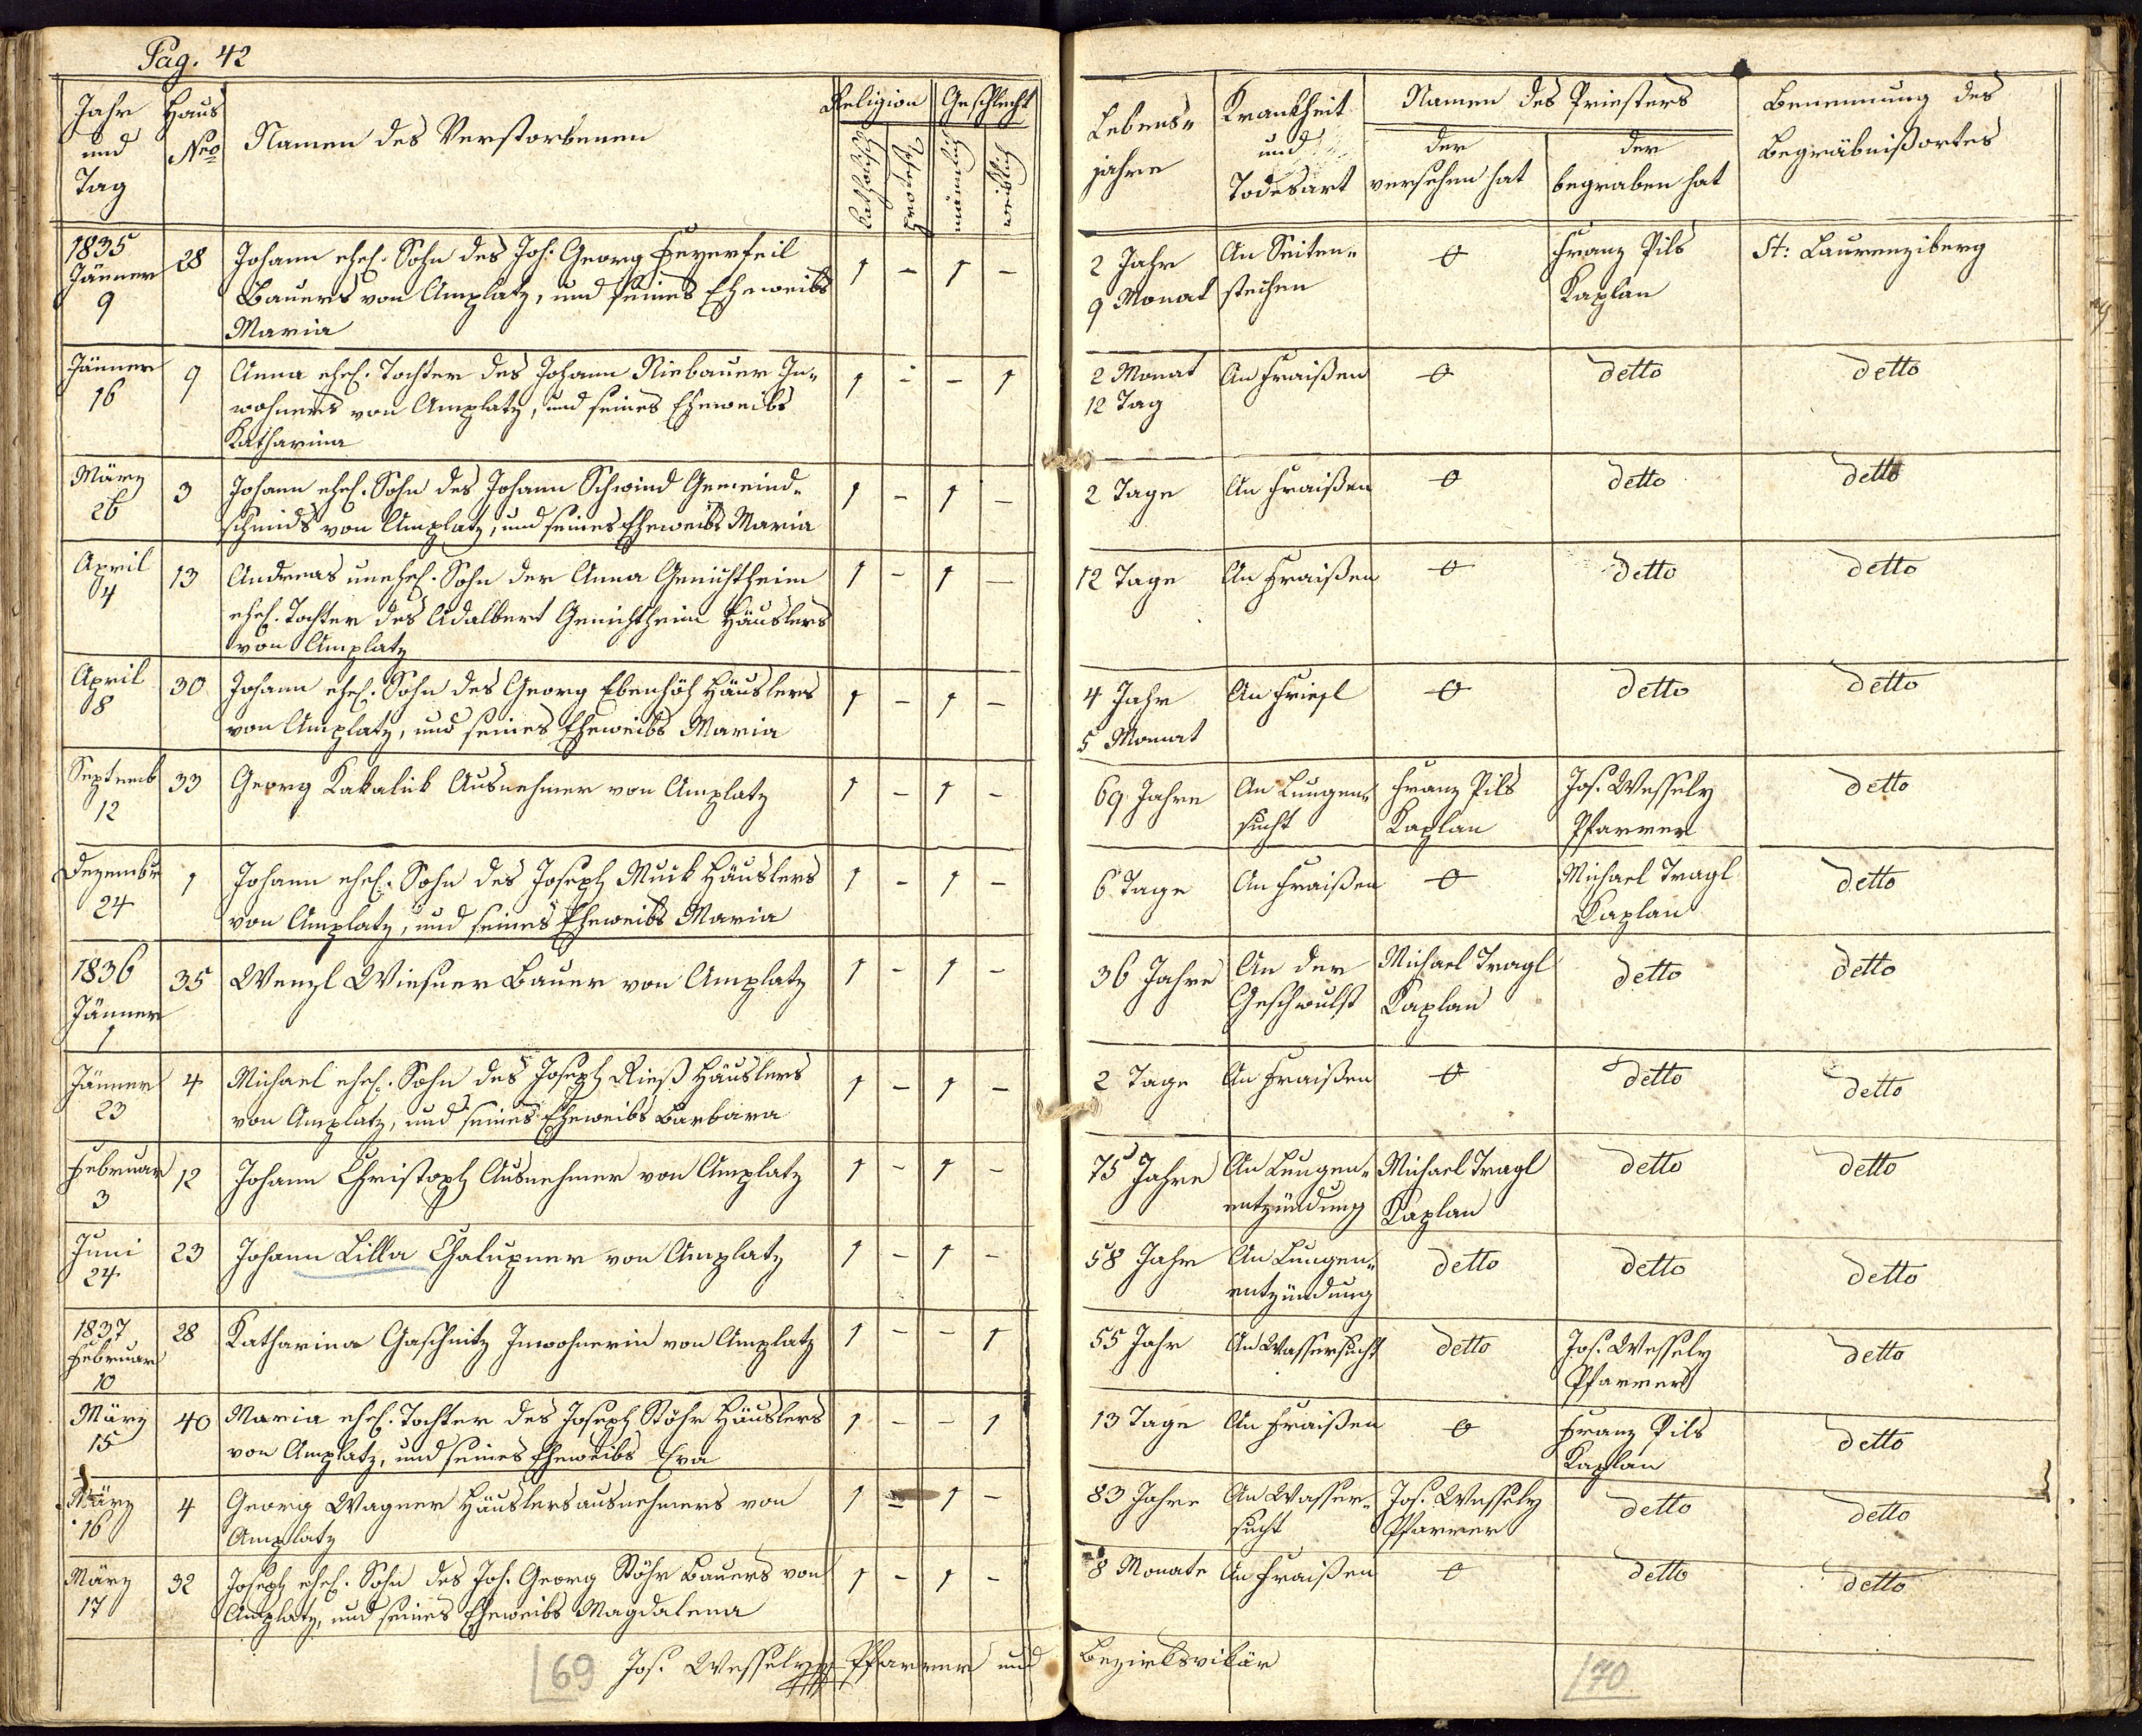 Pag. 42
Jahr und Tag
Haus Nro
Namen des Verstorbenen
Religion
katholisch
protest.
Geschlecht
männlich
weiblich
Lebensjahre
Krankheit und Todesart
Namen des Priesters
der versehen hat
der begraben hat
Benennung des Begräbnißortes
1835 Jänner 9
28
Johann ehel. Sohn des Joh. Georg Feyerfeil
Bauers von Amplatz, und seines Eheweibs
Maria
1 - 1 -
2 Jahr 9 Monat
An Seiten= stechen
0
Franz Pils Kaplan
St: Laurenziberg
Jänner 16
9
Anna ehel. Tochter des Johann Niebauer In=
wohners von Amplatz, und seines Eheweibs
Katharina
1 - - 1
2 Monat 12 Tag
An Fraißen
0
detto
detto
März 26
3
Johann ehel. Sohn des Johann Schwind Gemeind=
schmids von Amplatz, und seines Eheweibs Maria
1 - 1 -
2 Tage
An Fraißen
0
detto
detto
April 4
13
Andreas unehel. Sohn der Anna
ehel. Tochter des Adalbert Häuslers
von Amplatz
1 - 1 -
12 Tage
An Fraißen
0
detto
detto
April 8
30
Johann ehel. Sohn des Georg Ebenhöh Häuslers
von Amplatz, und seines Eheweibs Maria
1 - 1 -
4 Jahr 5 Monat
An Friesl
0
detto
detto
Septemb 12
33
Georg Kakalik Ausnehmer von Amplatz
1 - 1 -
69 Jahre
An Lungen= sucht
Franz Pils Kaplan
Jos. Wessely Pfarrer
detto
Dezembr 24
1
Johann ehel. Sohn des Joseph Muck Häuslers
von Amplatz, und seines Eheweibs Maria
1 - 1 -
6 Tage
An Fraißen
0
Michael Tragl Kaplan
detto
1836 Jänner 1
35
Wenzl Wiesner Bauer von Amplatz
1 - 1 -
36 Jahre
An der Geschwulst
Michael Tragl Kaplan
detto
detto
Jänner 23
4
Michael ehel. Sohn des Joseph Rieß Häuslers
von Amplatz, und seines Eheweibs Barbara
1 - 1 -
2 Tage
An Fraißen
0
detto
detto
Februar 3
12
Johann Christoph Ausnehmer von Amplatz
1 - 1 -
75 Jahre
An Lungen= entzündung
Michael Tragl Kaplan
detto
detto
Juni 24
23
Johann Lilla Chalupner von Amplatz
1 - 1 -
58 Jahr
An Lungen= entzündung
detto
detto
detto
1837 Februar 10
28
Katharina Gaschnitz Inwohnerin von Amplatz
1 - - 1
55 Jahr
An Wassersucht
detto
Jos. Wessely Pfarrer
detto
März 15
40
Maria ehel. Tochter des Joseph Stöhr Häuslers
von Amplatz, und seines Eheweibs Eva
1 - - 1
13 Tage
An Fraißen
0
Franz Pils Kaplan
detto
März 16
4
Georg Wagner Häuslersausnehmers von
Amplatz
1 - 1 -
83 Jahre
An Wasser= sucht
Jos. Wessely Pfarrer
detto
detto
März 17
32
Joseph ehel. Sohn des Joh. Georg Stöhr Bauers von
Amplatz, und seines Eheweibs Magdalena
1 - 1 -
8 Monate
An Fraißen
0
detto
detto
69
Jos. Wessely Pfarrer und Bezirksvikär
70